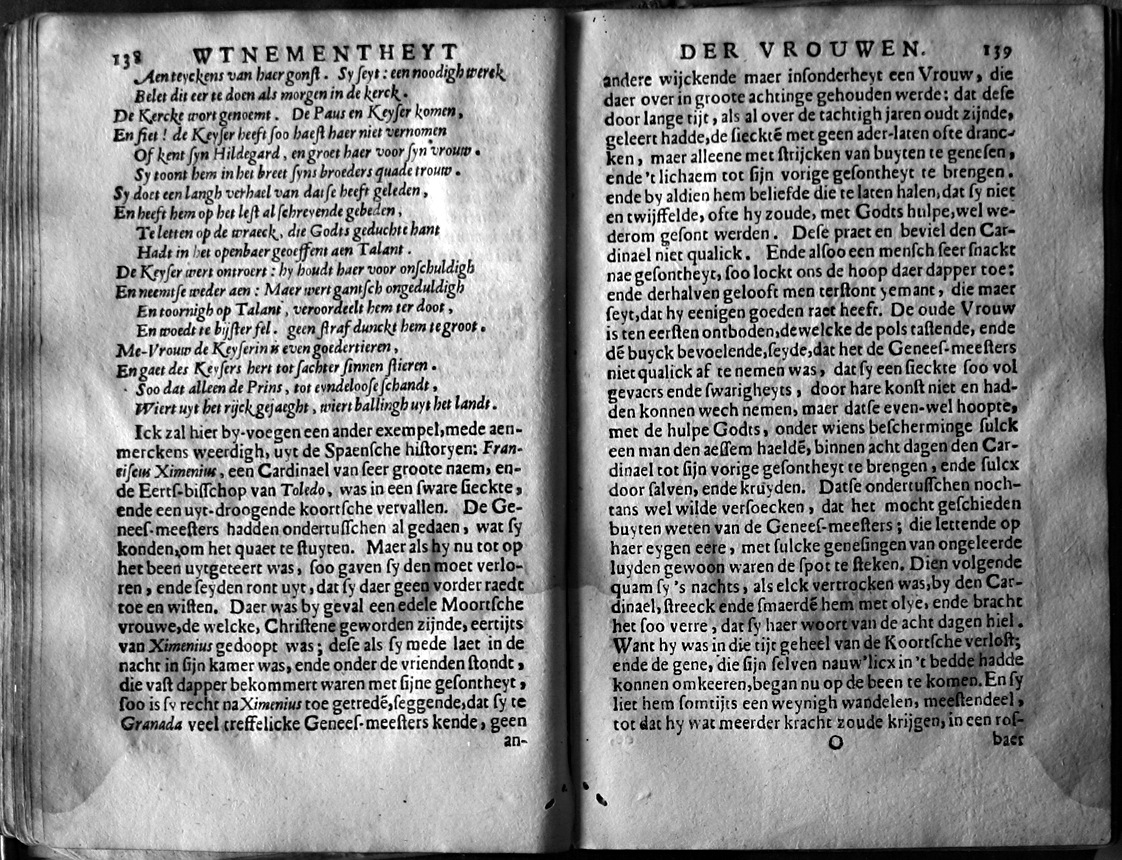 138 WTNEMENTHEYT
Aenteyckens van haer gonſt. Sy ſeyt: een noodigh werck
Belet dit eer te doen als morgen in de kerck.
De Kercke wort genoemt. De Paus en Keyſer komen,
En ſiet! de Keyſer heeft ſoo haeſt haer niet vernomen
Of kent ſyn Hildegard, en groet haer voor ſyn vrouw.
Sy toont hem in het breet ſyns broeders quade trouw.
Sy doet een langh verhael van datſe heeft geleden,
En heeft hem op het leſt al ſchreyende gebeden,
Te letten op de wraeck, die Godts geduchte hant
Hadt in het openbaer geoeffent aen Talant.
De Keyſer wert ontroert: hy houdt haer voor onſchuldigh
En neemtſe weder aen: Maer wert gantſch ongeduldigh
En toornigh op Talant, veroordeelt hem ter doot,
En woedt te bijſter fel. geen ſtraf dunckt hem te groot.
Me-Vrouw de Keyſerin is even goedertieren,
En gaet des Keyſers hert tot ſachter ſinnen ſtieren.
Soo dat alleen de Prins, tot eyndelooſe ſchandt,
Wiert uyt het rijck gejaeght, wiert ballingh uyt het landt.
Ick zal hier by-voegen een ander exempel, mede aen-
merckens weerdigh, uyt de Spaenſche hiſtoryen: Fran-
ciſcus Ximenius, een Cardinael van ſeer groote naem, en-
de Eertſ-biſſchop van Toledo, was in een ſware ſieckte,
ende een uyt-droogende koortſche vervallen. De Ge-
neeſ-meeſters hadden ondertuſſchen al gedaen, wat ſy
konden, om het quaet te ſtuyten. Maer als hy nu tot op
het been uytgeteert was, ſoo gaven ſy den moet verlo-
ren, ende ſeyden ront uyt, dat ſy daer geen vorder raedt
toe en wiſten. Daer was by geval een edele Moortſche
vrouwe, de welcke, Chriſtene geworden zijnde, eertijts
van Ximenius gedoopt was; deſe als ſy mede laet in de
nacht in ſijn kamer was, ende onder de vrienden ſtondt,
die vaſt dapper bekommert waren met ſijne geſontheyt,
ſoo is ſy recht na Ximenius toe getredē, ſeggende, dat ſy te
Granada veel treffelicke Geneeſ-meeſters kende, geen
an-
DER VROUWEN. 139
andere wijckende maer inſonderheyt een Vrouw, die
daer over in groote achtinge gehouden werde: dat deſe
door lange tijt, als al over de tachtigh jaren oudt zijnde,
geleert hadde, de ſiecktē met geen ader-laten ofte dranc-
ken, maer alleene met ſtrijcken van buyten te geneſen,
ende 't lichaem tot ſijn vorige geſontheyt te brengen.
ende by aldien hem beliefde die te laten halen, dat ſy niet
en twijffelde, ofte hy zoude, met Godts hulpe, wel we-
derom geſont werden. Deſe praet en beviel den Car-
dinael niet qualick. Ende alſoo een menſch ſeer ſnackt
nae geſontheyt, ſoo lockt ons de hoop daer dapper toe:
ende derhalven gelooft men terſtont yemant, die maer
ſeyt, dat hy eenigen goeden raet heeft. De oude Vrouw
is ten eerſten ontboden, dewelcke de pols taſtende, ende
dē buyck bevoelende, ſeyde, dat het de Geneeſ-meeſters
niet qualick af te nemen was, dat ſy een ſieckte ſoo vol
gevaers ende ſwarigheyts, door hare konſt niet en had-
den konnen wech nemen, maer datſe even-wel hoopte,
met de hulpe Godts, onder wiens beſcherminge ſulck
een man den aeſſem haeldē, binnen acht dagen den Car-
dinael tot ſijn vorige geſontheyt te brengen, ende ſulcx
door ſalven, ende kruyden. Datſe ondertuſſchen noch-
tans wel wilde verſoecken, dat het mocht geſchieden
buyten weten van de Geneeſ-meeſters; die lettende op
haer eygen eere, met ſulcke geneſingen van ongeleerde
luyden gewoon waren de ſpot te ſteken. Dien volgende
quam ſy 's nachts, als elck vertrocken was, by den Car-
dinael, ſtreeck ende ſmaerdē hem met olye, ende bracht
het ſoo verre, dat ſy haer woort van de acht dagen hiel.
Want hy was in die tijt geheel van de Koortſche verloſt;
ende de gene, die ſijn ſelven nauw'licx in 't bedde hadde
konnen omkeeren, began nu op de been te komen. En ſy
liet hem ſomtijts een weynigh wandelen, meeſtendeel,
tot dat hy wat meerder kracht zoude krijgen, in een roſ-
O baer